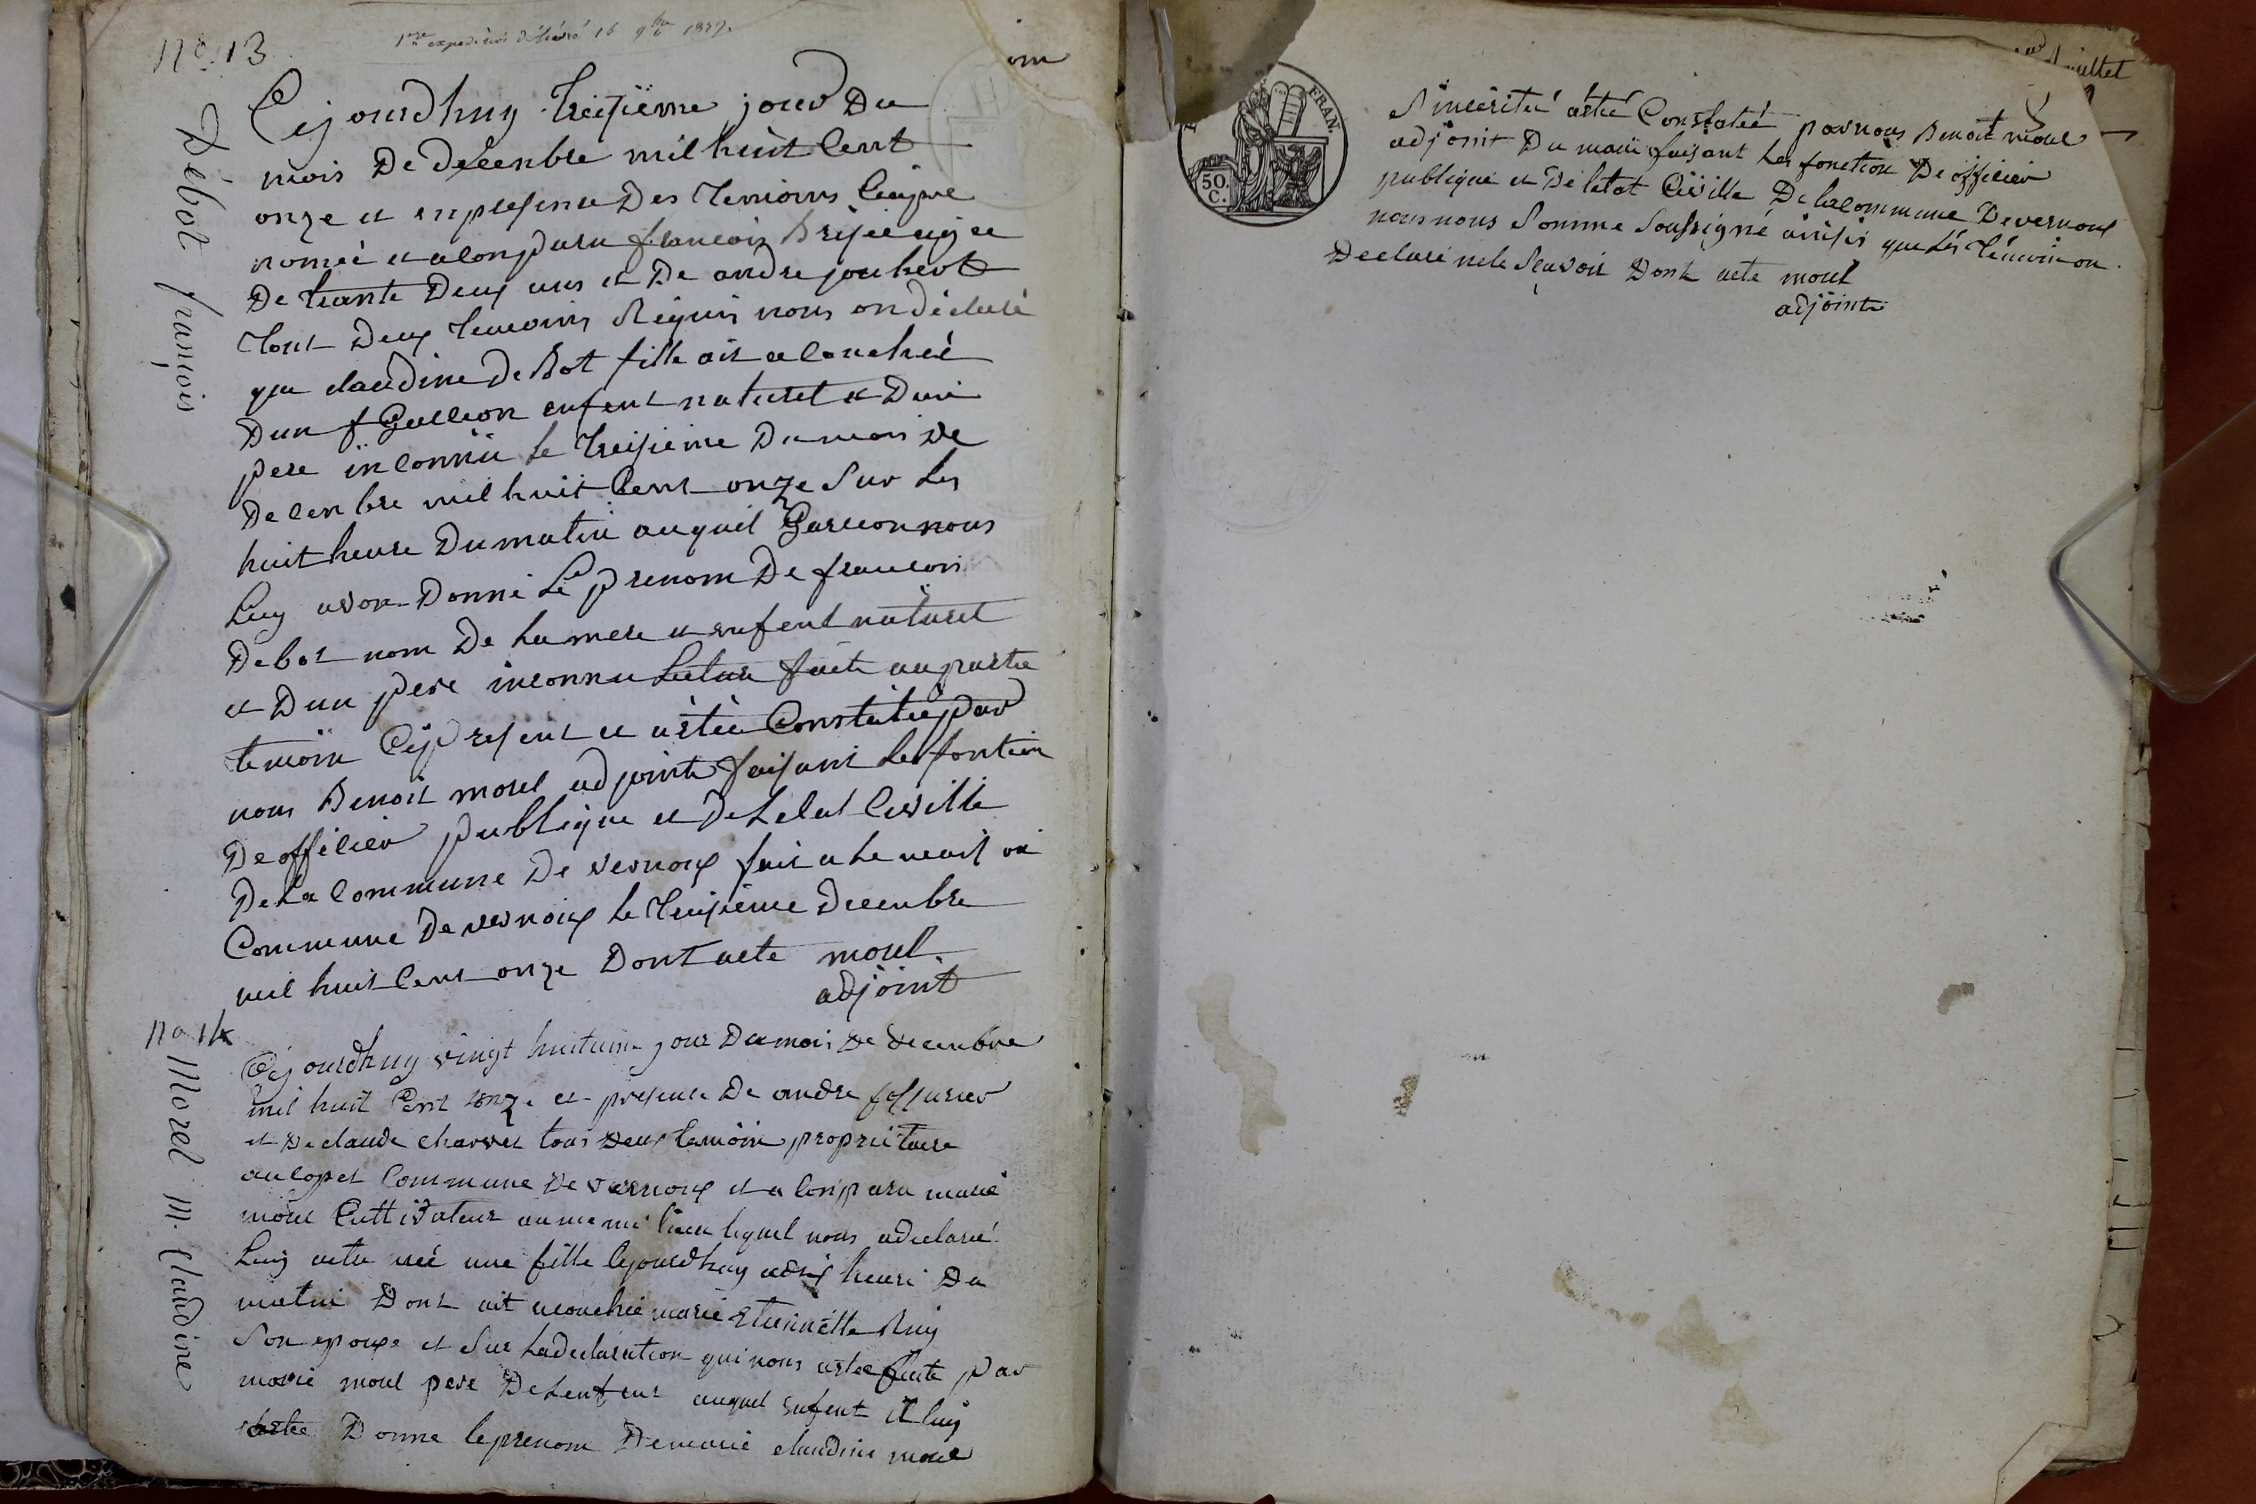 no. 13
1ere expedition délivré 16 9bre 1827.
Débot françois
Cejourdhuy treizième jour Du
mois De décembre mil huit Cent
onze et en presence Des temoins Cy apre
nomeé et a Conparu francois
De trante Deux ans et De andre joubert
tout Deux temoins Requis nous on Déclaré
que claudine De Bot fille ait acouchée
Dun Garcon enfent naturel et Dun
pere inconnu le treizieme Du mois De
Decenbre mil huit Cent onze Sur les
huit heure Du matin auquel Garcon nous
luy avon Donné le prenom De francois
Debot nom De la mere et enfent naturel
et Dun pere inconnu lecture faite au partie
temoin Cy present et a étée Constateé par
nous Benoit morel adjointe faisant les fontion
De officier publique et De letat Civille
De La Commune De vernoux fait a la
Commune De vernoux le treizieme Decenbre
mil huit Cent onze Dont acte morel
adjoint
no 14
Morel M. Claudine
Cejourdhuy vingt huitieme jour Du mois De Decenbre
mil huit Cent onze et presence De andre
et De claude charvet tous Deux temoin propriétaire
au Commune De vernoux et a Conparu marie
morel Cultivateur au meme lieu lequel nous a declaré
Luy une fille Cejourdhuy a heure Du
matin Dont ait acouchée marie Etiennette
Son epouse et Sur la declaration qui nous a été faite par
marie morel pere De Lenfent auquel enfent il luy
Donne le prenom De marie claudine morel
Sincérité a été Constateé par nous Benoit morel
adjoint Du maire faisant les fonction De officier
publique et De letat Civille De la commune De vernoux
nous nous Somme Soussigné que les témoin on
Declaré ne le Scavoir Dont acte morel
adjointe
FRAN.
50.
C.
juillet